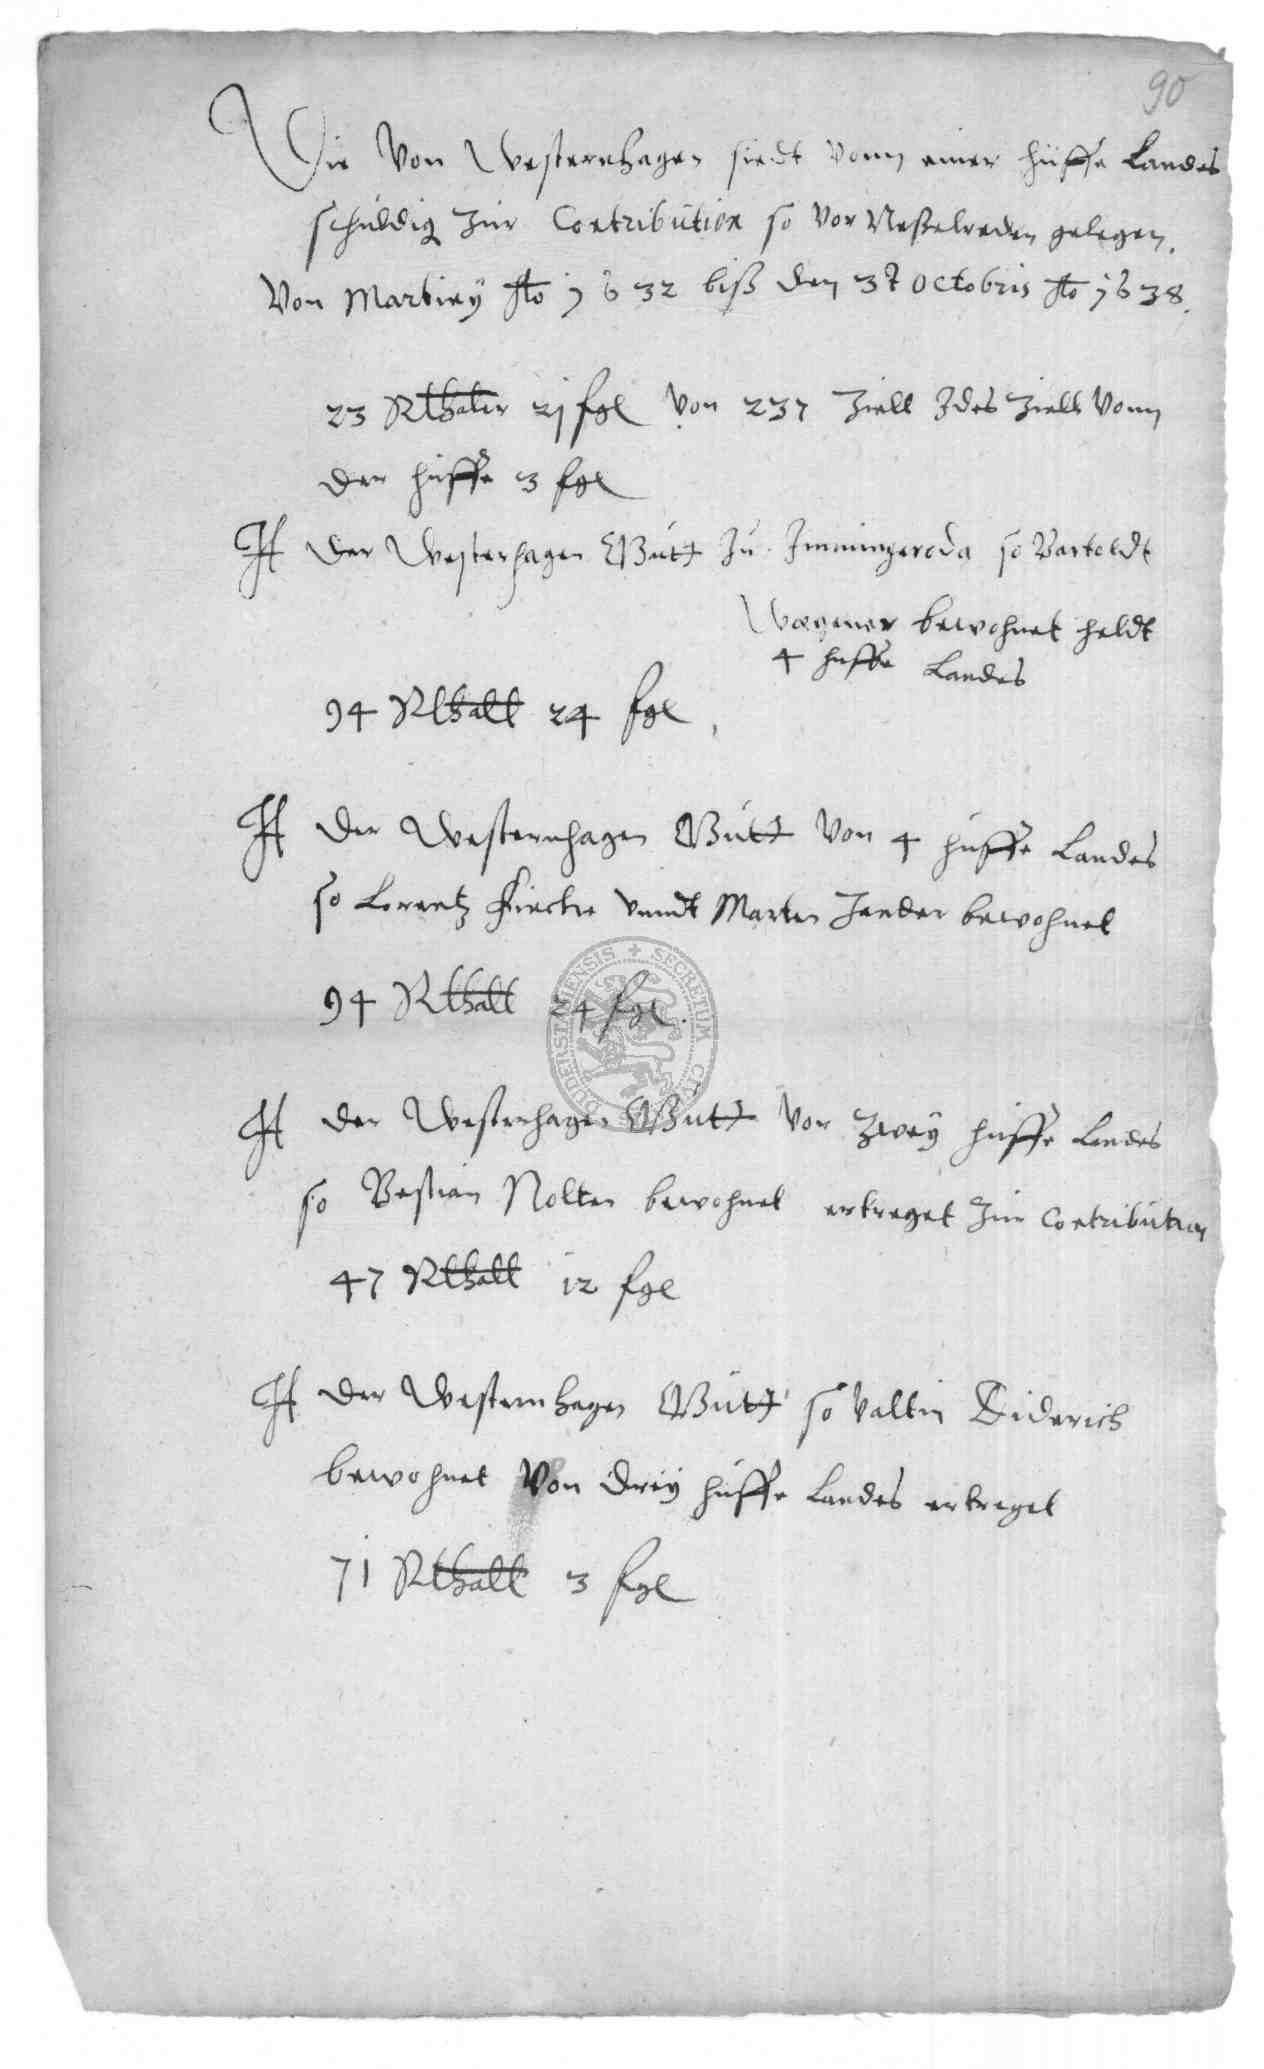 90
Die Von Westernhagen siendt vonn einer huffe Landes
schuldig zur Contribution so vor Neßelreden gelegen.
Von Martiny Ao 1632 biß den 31 Octobris Ao 1638.
23 Rthaler 21 fgl von 237 Ziell Jdes Ziells vonn
der huffe 3 fgl
It der Westerhagen Gutt Zu Immingeroda so Bartoldt
Wegener bewohnet heldt
4 huffe Landes
94 Rthall 24 fgl,
It der Westernhagen Gutt von 4 huffe Landes
so Lorentz Fircke vnndt Marten Zender bewohnet
94 Rthall 24 fgl.
It der Westerhagen Gutt vor zwey huffe Landes
so Bestian Nolten bewohnet ertreget zur Contribution
47 Rthall 12 fgl
It der Westernhagen Gutt so valtin Diderich
bewohnet von drey huffe Landes ertreget
71 Rthall 3 fgl
SECRETUM DUDERSTADIENSIS